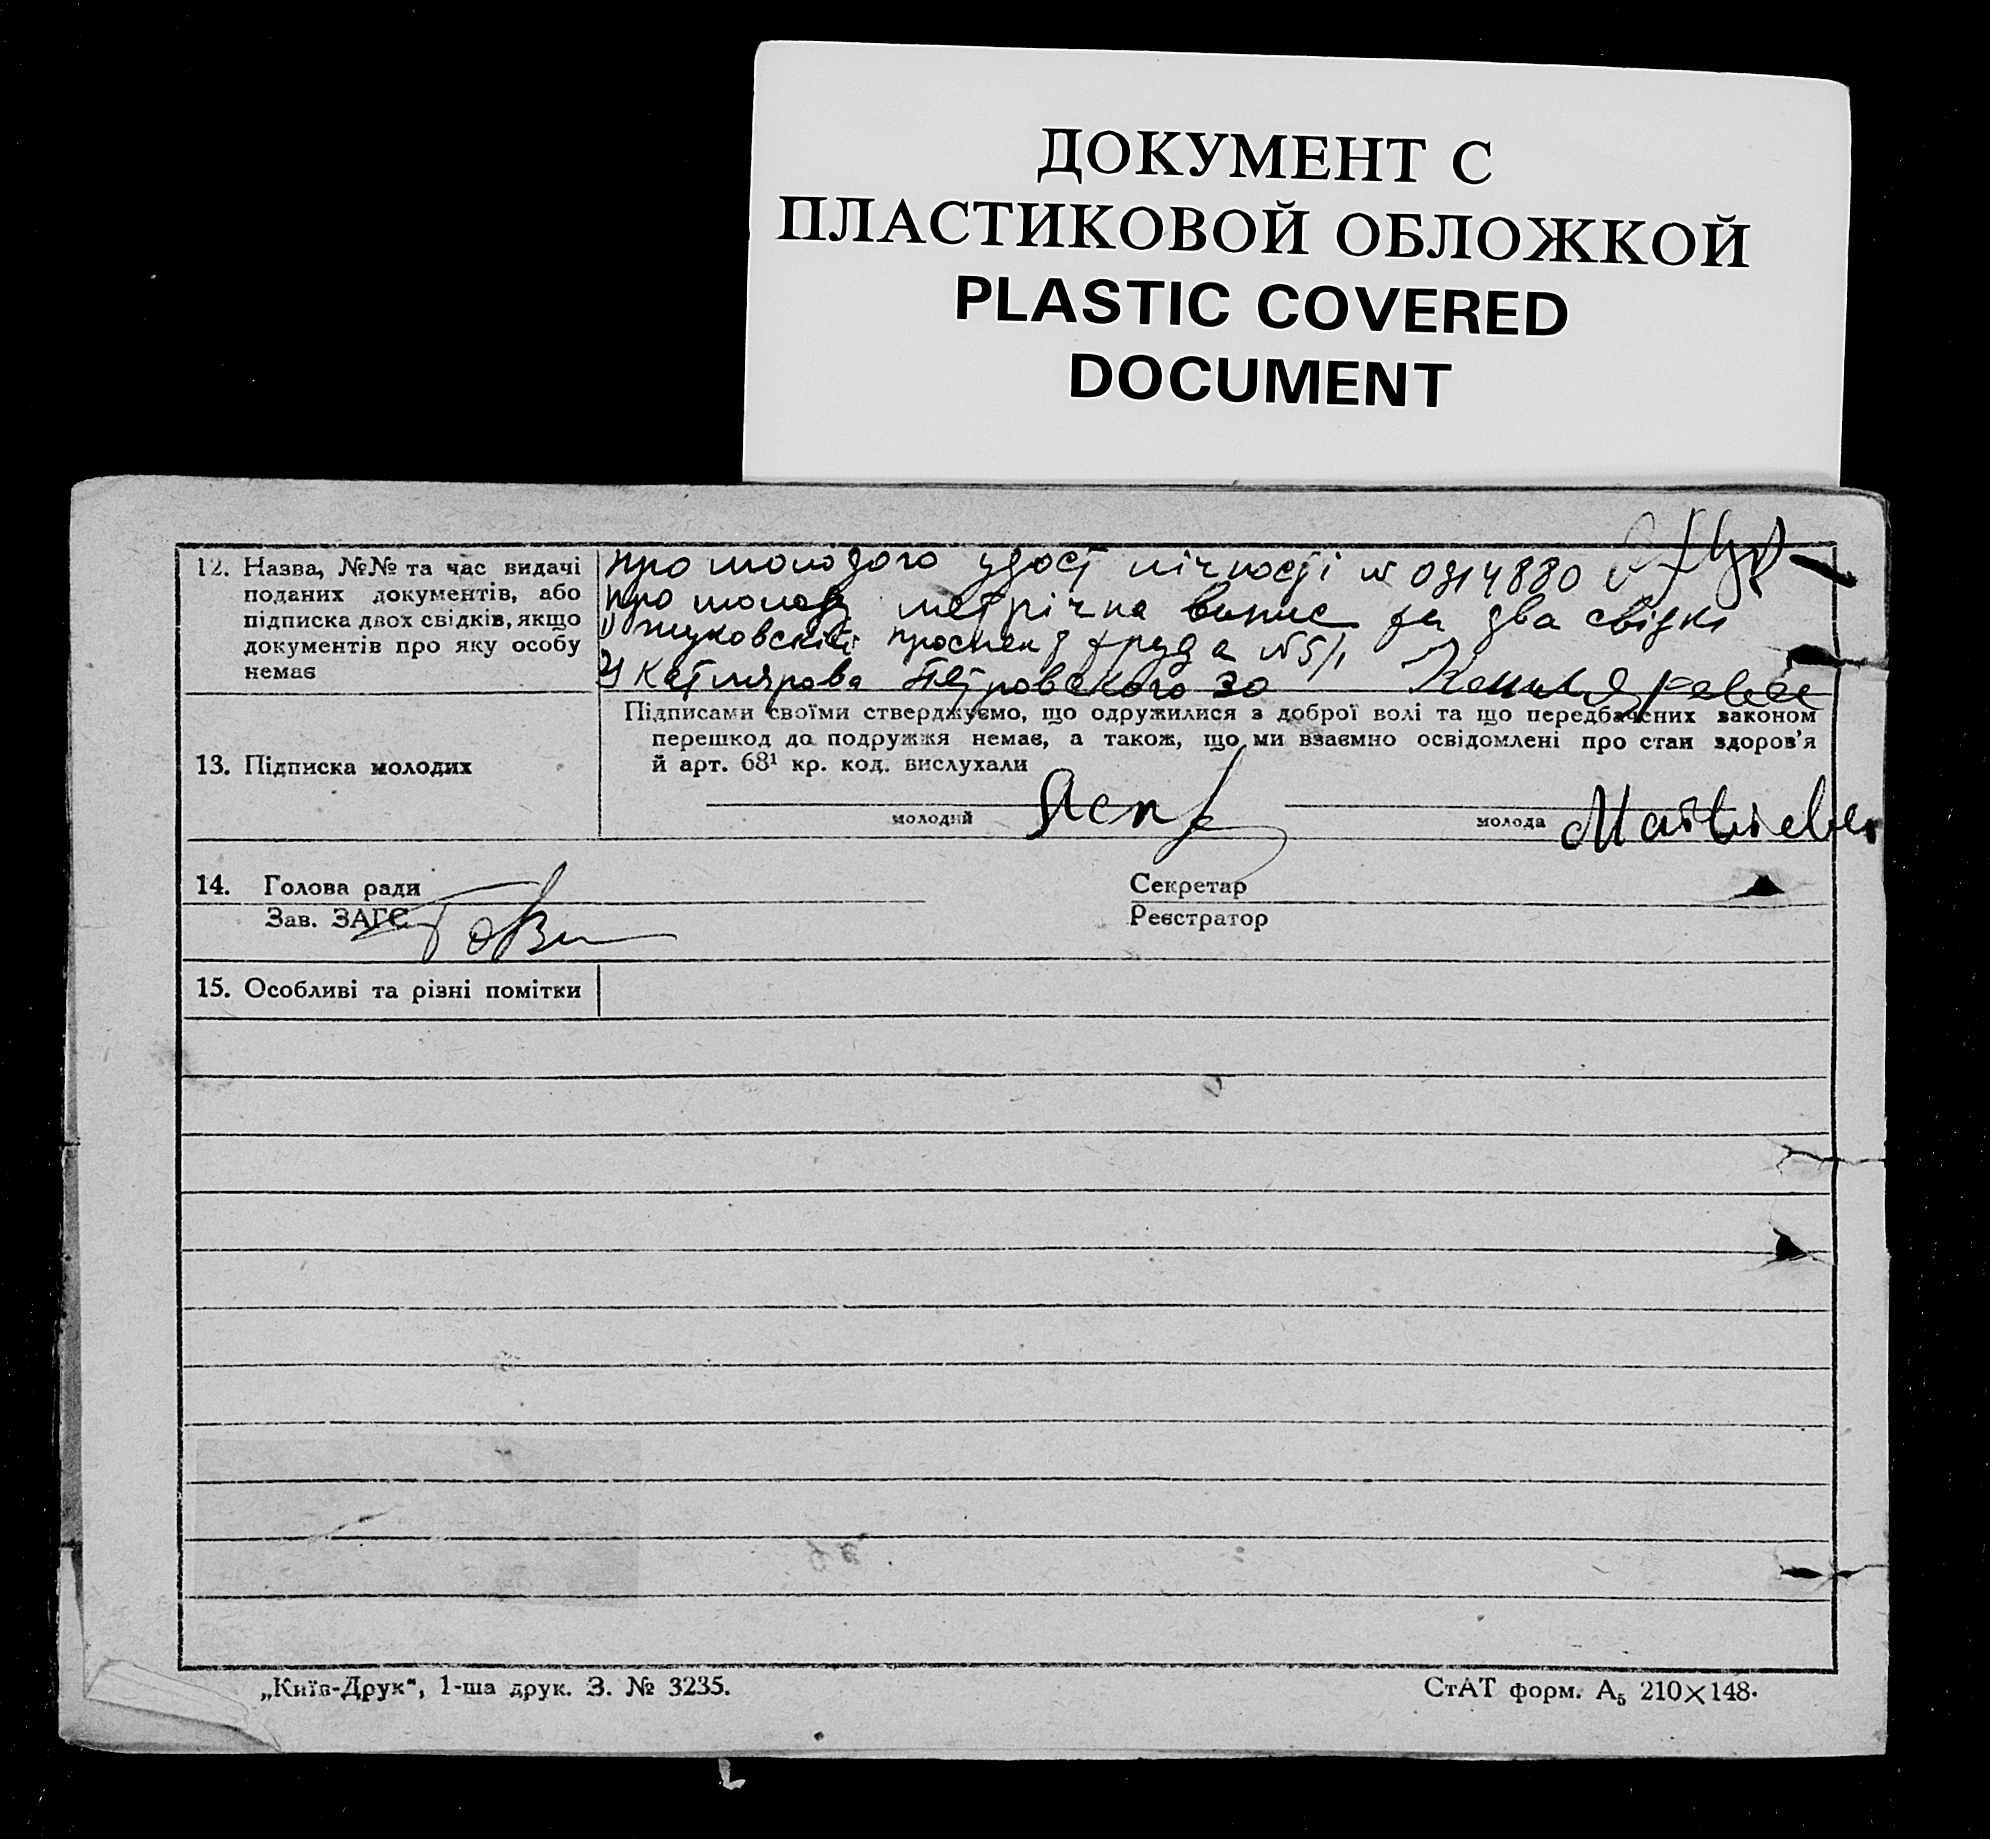 ДОКУМЕНТ С
ПЛАСТИКОВОЙ ОБЛОЖКОЙ
PLASTIC COVERED
DOCUMENT
12. Назва, №№ та час видачі
поданих документів, або
підписка двох свідків, якщо
документів про яку особу
немає
про молодого удост лічності №
про молоду метрічна випис та два свідкі
проспект труда № 5/1
2) Котлярова Петровського 30
13. Підписка молодих
Підписами своїми стверджуємо, що одружилися з доброї волі та що передбачених законом
перешкод до подружжя немає, а також, що ми взаємно освідомлені про стан здоров'я
й арт. 68¹ кр. код. вислухали
молодий
молода Матвієва
14. Голова ради
Зав. ЗАГС
Секретар
Реєстратор
15. Особливі та різні помітки
„Київ-Друк“, 1-ша друк. З. № 3235.
СтАТ форм. А₅ 210×148.